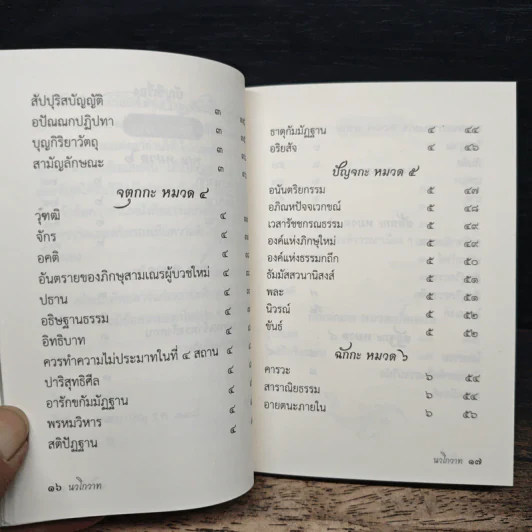 สัปปุริสบัญญัติ ๓
อปัณณกปฏิปทา ๓
บุญกิริยาวัตถุ ๓
สามัญลักษณะ ๓
จตุกกะ หมวด ๔
วุฑฒิ ๔
จักร ๔
อคติ ๔
อันตรายของภิกษุสามเณรผู้บวชใหม่ ๔
ปธาน ๔
อธิษฐานธรรม ๔
อิทธิบาท ๔
ควรทำความไม่ประมาทในที่ ๔ สถาน ๔
ปาริสุทธิศีล ๔
อารักขกัมมัฏฐาน ๔
พรหมวิหาร ๔
สติปัฏฐาน ๔
๑๖ นวโกวาท
ธาตุกัมมัฏฐาน ๔ ๔๔
อริยสัจ ๔ ๔๖
ปัญจกะ หมวด ๕
อนันตริยกรรม ๕ ๔๗
อภิณหปัจจเวกขณ์ ๕ ๔๘
เวสารัชชกรณธรรม ๕ ๔๙
องค์แห่งภิกษุใหม่ ๕ ๔๙
องค์แห่งธรรมกถึก ๕ ๕๐
ธัมมัสสวนานิสงส์ ๕ ๕๑
พละ ๕ ๕๑
นิวรณ์ ๕ ๕๒
ขันธ์ ๕ ๕๒
ฉักกะ หมวด ๖
คารวะ ๖ ๕๔
สาราณิยธรรม ๖ ๕๔
อายตนะภายใน ๖ ๕๖
นวโกวาท ๑๗